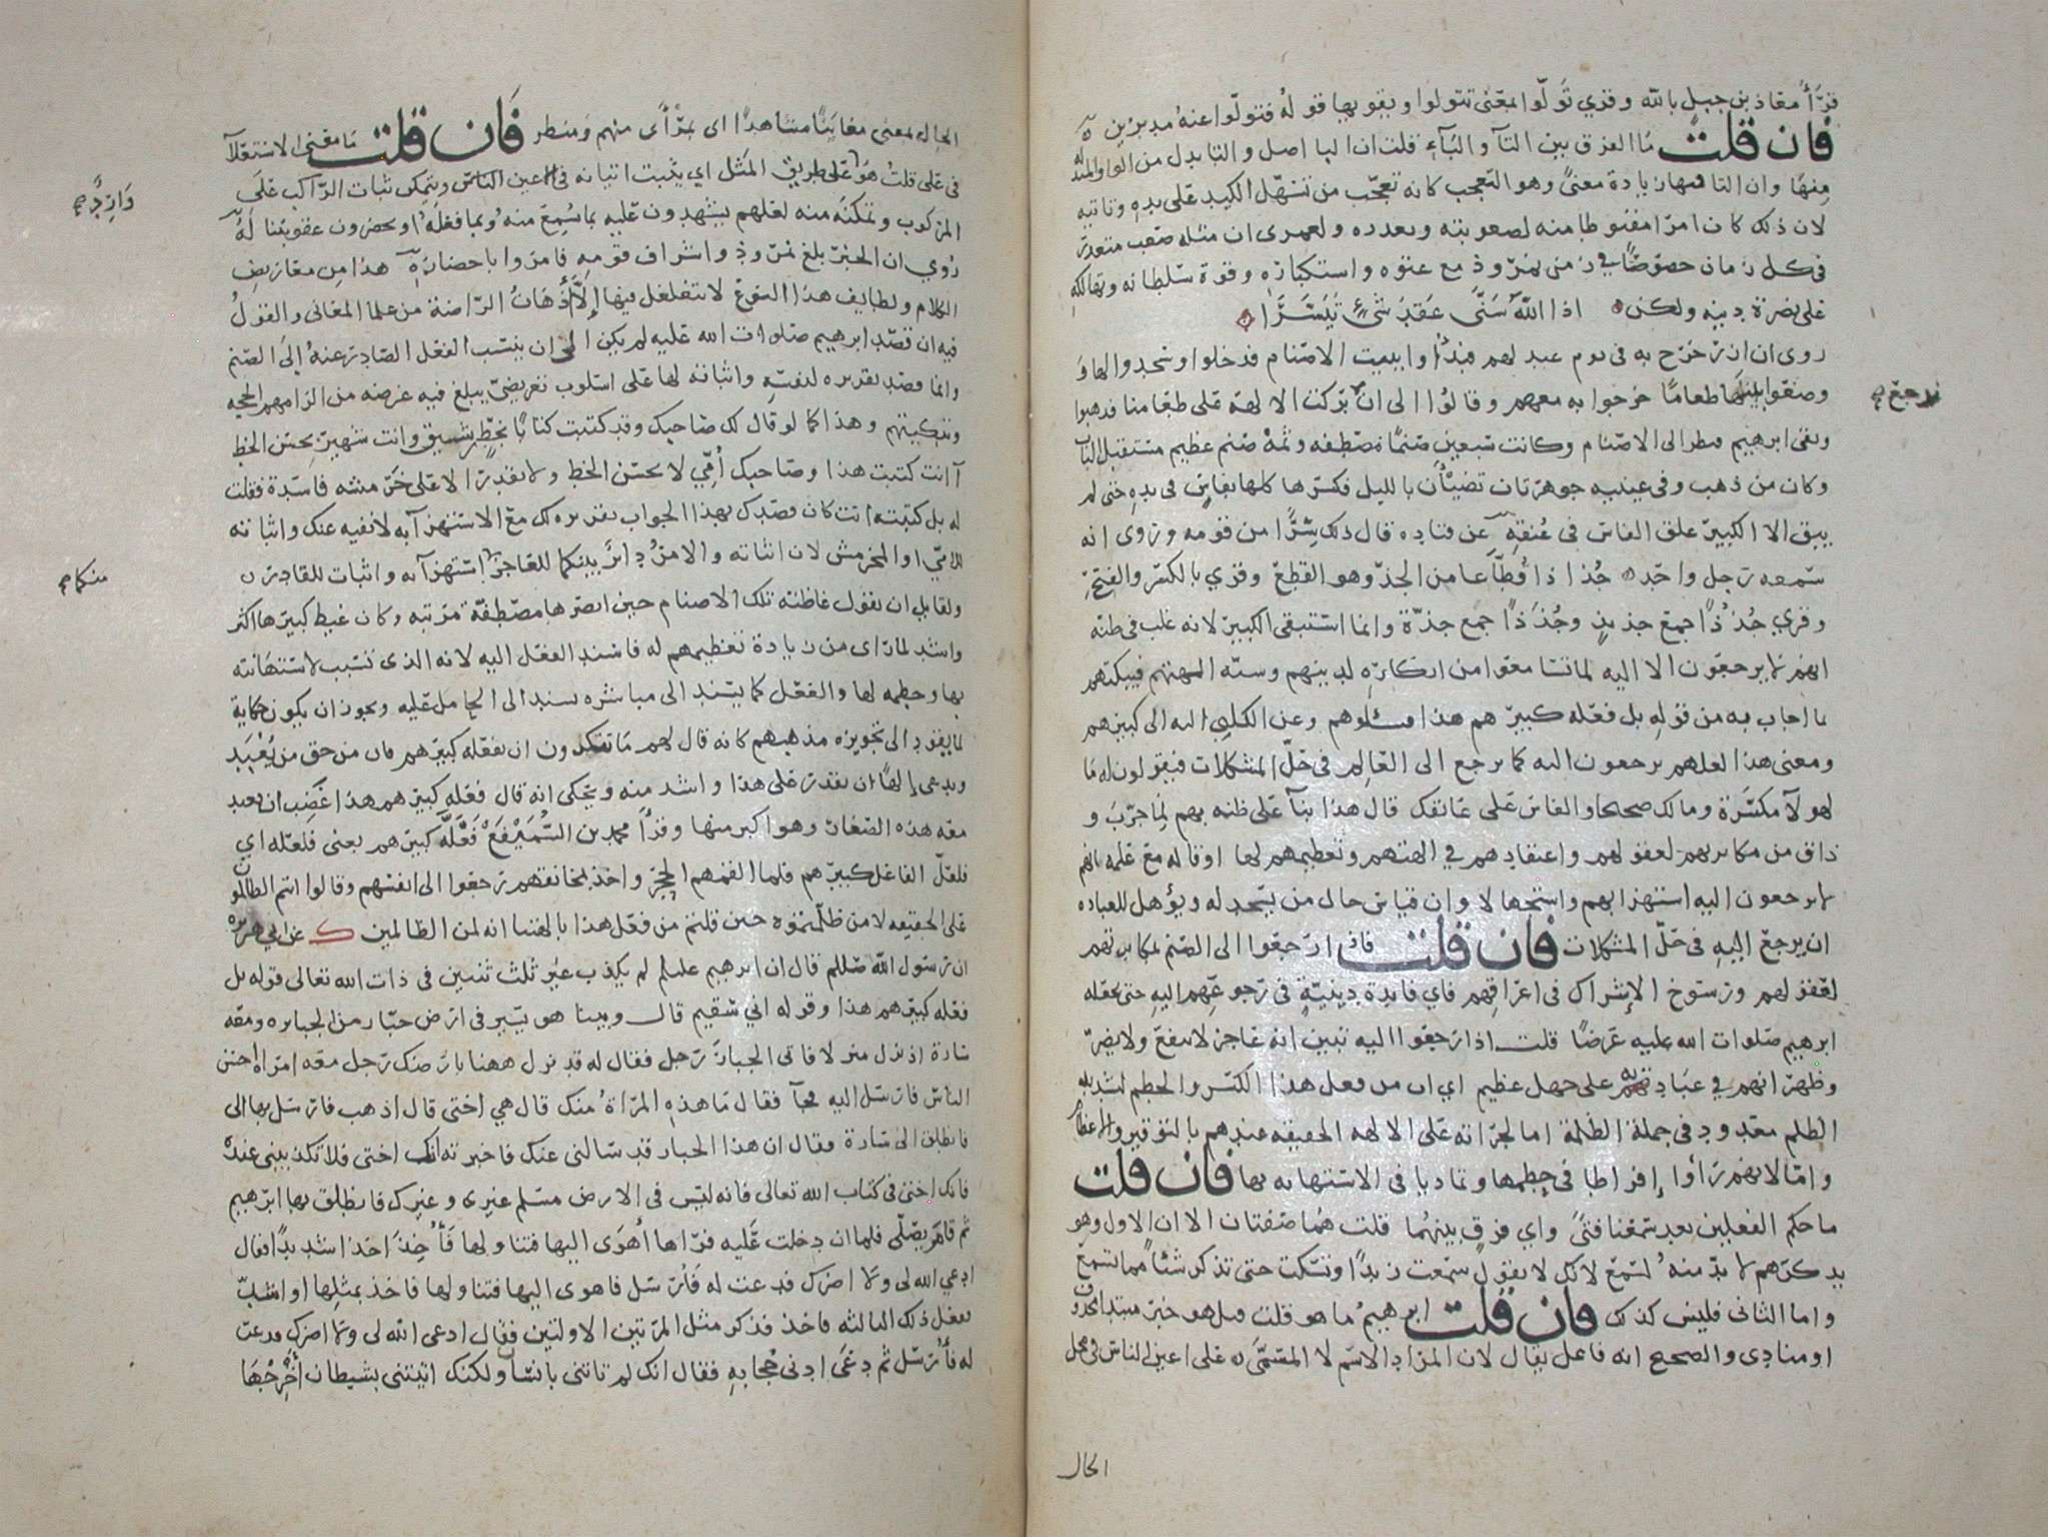 قرأ معاذ بن جبل بالله وقري تولوا بمعنى تتولوا ويقويها قوله فتولوا عنه مدبرين
فان قلت ما الفرق بين التآ والبآء قلت ان البا اصل والتا بدل من الواو المبدلة
منها وان التا فيها زيادة معنى وهو التعجب كانه تعجب من تسهل الكيد على يده وتاتيه
لان ذلك كان امرا مقنوطا منه لصعوبته وتعذره ولعمرى ان مثله صعب متعذر
فى كل زمان خصوصا فى زمن نمروذ مع عتوه واستكباره وقوة سلطانه وتهالكه
على نصرة دينه ولكن اذا الله سنى عقد شئ تيسرا
روى ان ازر خرج به فى يوم عيد لهم فبدؤا ببيت الاصنام فدخلوا وسجدوا لها و
وضعوا بينها طعاما خرجوا به معهم وقالوا الى ان بركت الالهة على طعامنا فذهبوا
نرجع صح
وبقى ابرهيم فنظر الى الاصنام وكانت سبعين صنما مصطفه وثمه صنم عظيم مستقبل الباب
وكان من ذهب وفى عينيه جوهرتان تضيئان بالليل فكسرها كلها بفاس فى يده حتى لم
يبق الا الكبير علق الفاس فى عنقه عن قتاده قال ذلك سرا من قومه وروى انه
سمعه رجل واحد جذاذا قطاعا من الجذ وهو القطع وقري بالكسر والفتح
وقري جذذا جمع جذيذ وجذذا جمع جذة وانما استبقى الكبير لانه غلب فى ظنه
انهم لا يرجعون الا اليه لما تسامعوا من انكاره لدينهم وسبه الهتهم فيبكتهم
بما اجاب به من قوله بل فعله كبيرهم هذا فسئلوهم وعن الكلبي اليه الى كبيرهم
ومعنى هذا لعلهم يرجعون اليه كما يرجع الى العالم فى حل المشكلات فيقولون له ما
لهولآ مكسرة وما لك صحيحا والفاس على عاتقك قال هذا بنآ على ظنه بهم لما جرب و
ذاق من مكابرتهم لعقولهم واعتقادهم في الهتهم وتعظيمهم لها او قاله مع علمه انهم
لا يرجعون اليه استهزا بهم واستجهالا وان قياس حال من يسجد له ويؤهل للعباده
ان يرجع اليه فى حل المشكلات فان قلت فاذا رجعوا الى الصنم بمكابرتهم
لعقولهم ورسوخ الاشراك فى اعراقهم فاي فايدة دينية في رجوعهم اليه حتى يجعله
ابرهيم صلوات الله عليه غرضا قلت اذا رجعوا اليه تبين انه عاجز لا ينفع ولا يضر
وظهر انهم في عبادته على جهل عظيم اي ان من فعل هذا الكسر والحطم لشديد
الظلم معدود فى جملة الظلمة اما لجراته على الالهة الحقيقه عندهم بالتوقير والاعظام
واما لانهم راوا إفراطا فى حطمها وتماديا فى الاستهانه بها فان قلت
ما حكم الفعلين بعد سمعنا فتى واي فرق بينهما قلت هما صفتان الا ان الاول وهو
يذكرهم لا بد منه لسمع لانك لا تقول سمعت زيدا وتسكت حتى تذكر شئا مما يسمع
واما الثانى فليس كذلك فان قلت ابرهيم ما هو قلت قيل هو خبر مبتدا محذوف
او منادى والصحيح انه فاعل يقال لان المراد الاسم لا المسمى على اعين الناس فى محل
الحال
الحال بمعنى معاينا مشاهدا اى بمرأى منهم ومنظر فان قلت ما معنى الاستعلآ
فى على قلت هو على طريق المثل اي يثبت اتيانه فى اعين الناس ويتمكن ثبات الراكب على
وارد صح
المركوب وتمكنه منه لعلهم يشهدون عليه بما سمع منه وبما فعله او يحضرون عقوبتنا له
روي ان الخبر بلغ نمروذ واشراف قومه فامروا باحضاره هذا من معاريض
الكلام ولطايف هذا النوع لا يتغلغل فيها إلا أذهان الراضة من علما المعانى والقول
فيه ان قصد ابرهيم صلوات الله عليه لم يكن الى ان ينسب الفعل الصادر عنه الى الصنم
وانما قصد تقريره لنفسه واثباته لها على اسلوب تعريضي يبلغ فيه غرضه من الزامهم الحجه
وتبكيتهم وهذا كما لو قال لك صاحبك وقد كتبت كتابا بخط رشيق وانت شهير بحسن الخط
آانت كتبت هذا وصاحبك أمي لا يحسن الخط ولا يقدر الا على خرمشه فاسدة فقلت
له بل كتبته انت كان قصدك بهذا الجواب تقريره لك مع الاستهزآ به لا نفيه عنك واثباته
للامي او المخرمش لان اثباته والامر داير بينكما للعاجز استهزآ به واثبات للقادر
منكما صح
ولقايل ان يقول غاظته تلك الاصنام حين ابصرها مصطفة مرتبه وكان غيظ كبيرها اكثر
واشد لما راى من زيادة تعظيمهم له فاسند الفعل اليه لانه الذى تسبب لاستهانته
بها وحطمه لها والفعل كما يسند الى مباشره يسند الى الحامل عليه ويجوز ان يكون حكاية
لما يقود الى تجويزه مذهبهم كانه قال لهم ما تنكرون ان يفعله كبيرهم فان من حق من يعبد
ويدعى إلها ان يقدر على هذا واشد منه ويحكى انه قال فعله كبيرهم هذا غضب ان يعبد
معه هذه الصغار وهو اكبر منها وقرأ محمد بن السميفع فعله كبيرهم يعنى فلعله اي
فلعل الفاعل كبيرهم فلما القمهم الحجر واخذ بمخانقهم رجعوا الى انفسهم وقالوا انتم الظالمون
على الحقيقه لا من ظلمتموه حين قلتم من فعل هذا بالهتنا انه لمن الظالمين ك عن ابي هريره
ان رسول الله صللم قال ان ابرهيم عليلم لم يكذب غير ثلث ثنتين فى ذات الله تعالى قوله بل
فعله كبيرهم هذا وقوله اني سقيم قال وبينا هو يسير فى ارض جبار من الجبابره ومعه
سارة اذ نزل منزلا فاتى الجبار رجل فقال له قد نزل ههنا بارضك رجل معه امراة احسن
الناس فارسل اليه فجآ فقال ما هذه المراة منك قال هي اختى قال اذهب فارسل بها الى
فانطلق الى سارة وقال ان هذا الجبار قد سالنى عنك فاخبرته انك اختى فلا تكذبينى عنده
فانك اختى فى كتاب الله تعالى فانه ليس فى الارض مسلم غيرى وغيرك فانطلق بها ابرهيم
ثم قام يصلى فلما ان دخلت عليه فراها أهوى اليها فتناولها فأخذ اخذا شديدا فقال
ادعي الله لى ولا اضرك فدعت له فأرسل فاهوى اليها فتناولها فاخذ بمثلها او اشد
ففعل ذلك الثالثه فاخذ فذكر مثل المرتين الاولتين فقال ادعى الله لى ولا اضرك فدعت
له فأرسل ثم دعى ادنى حجابه فقال انك لم تاتنى بانسان ولكنك اتيتنى بشيطان أخرجها